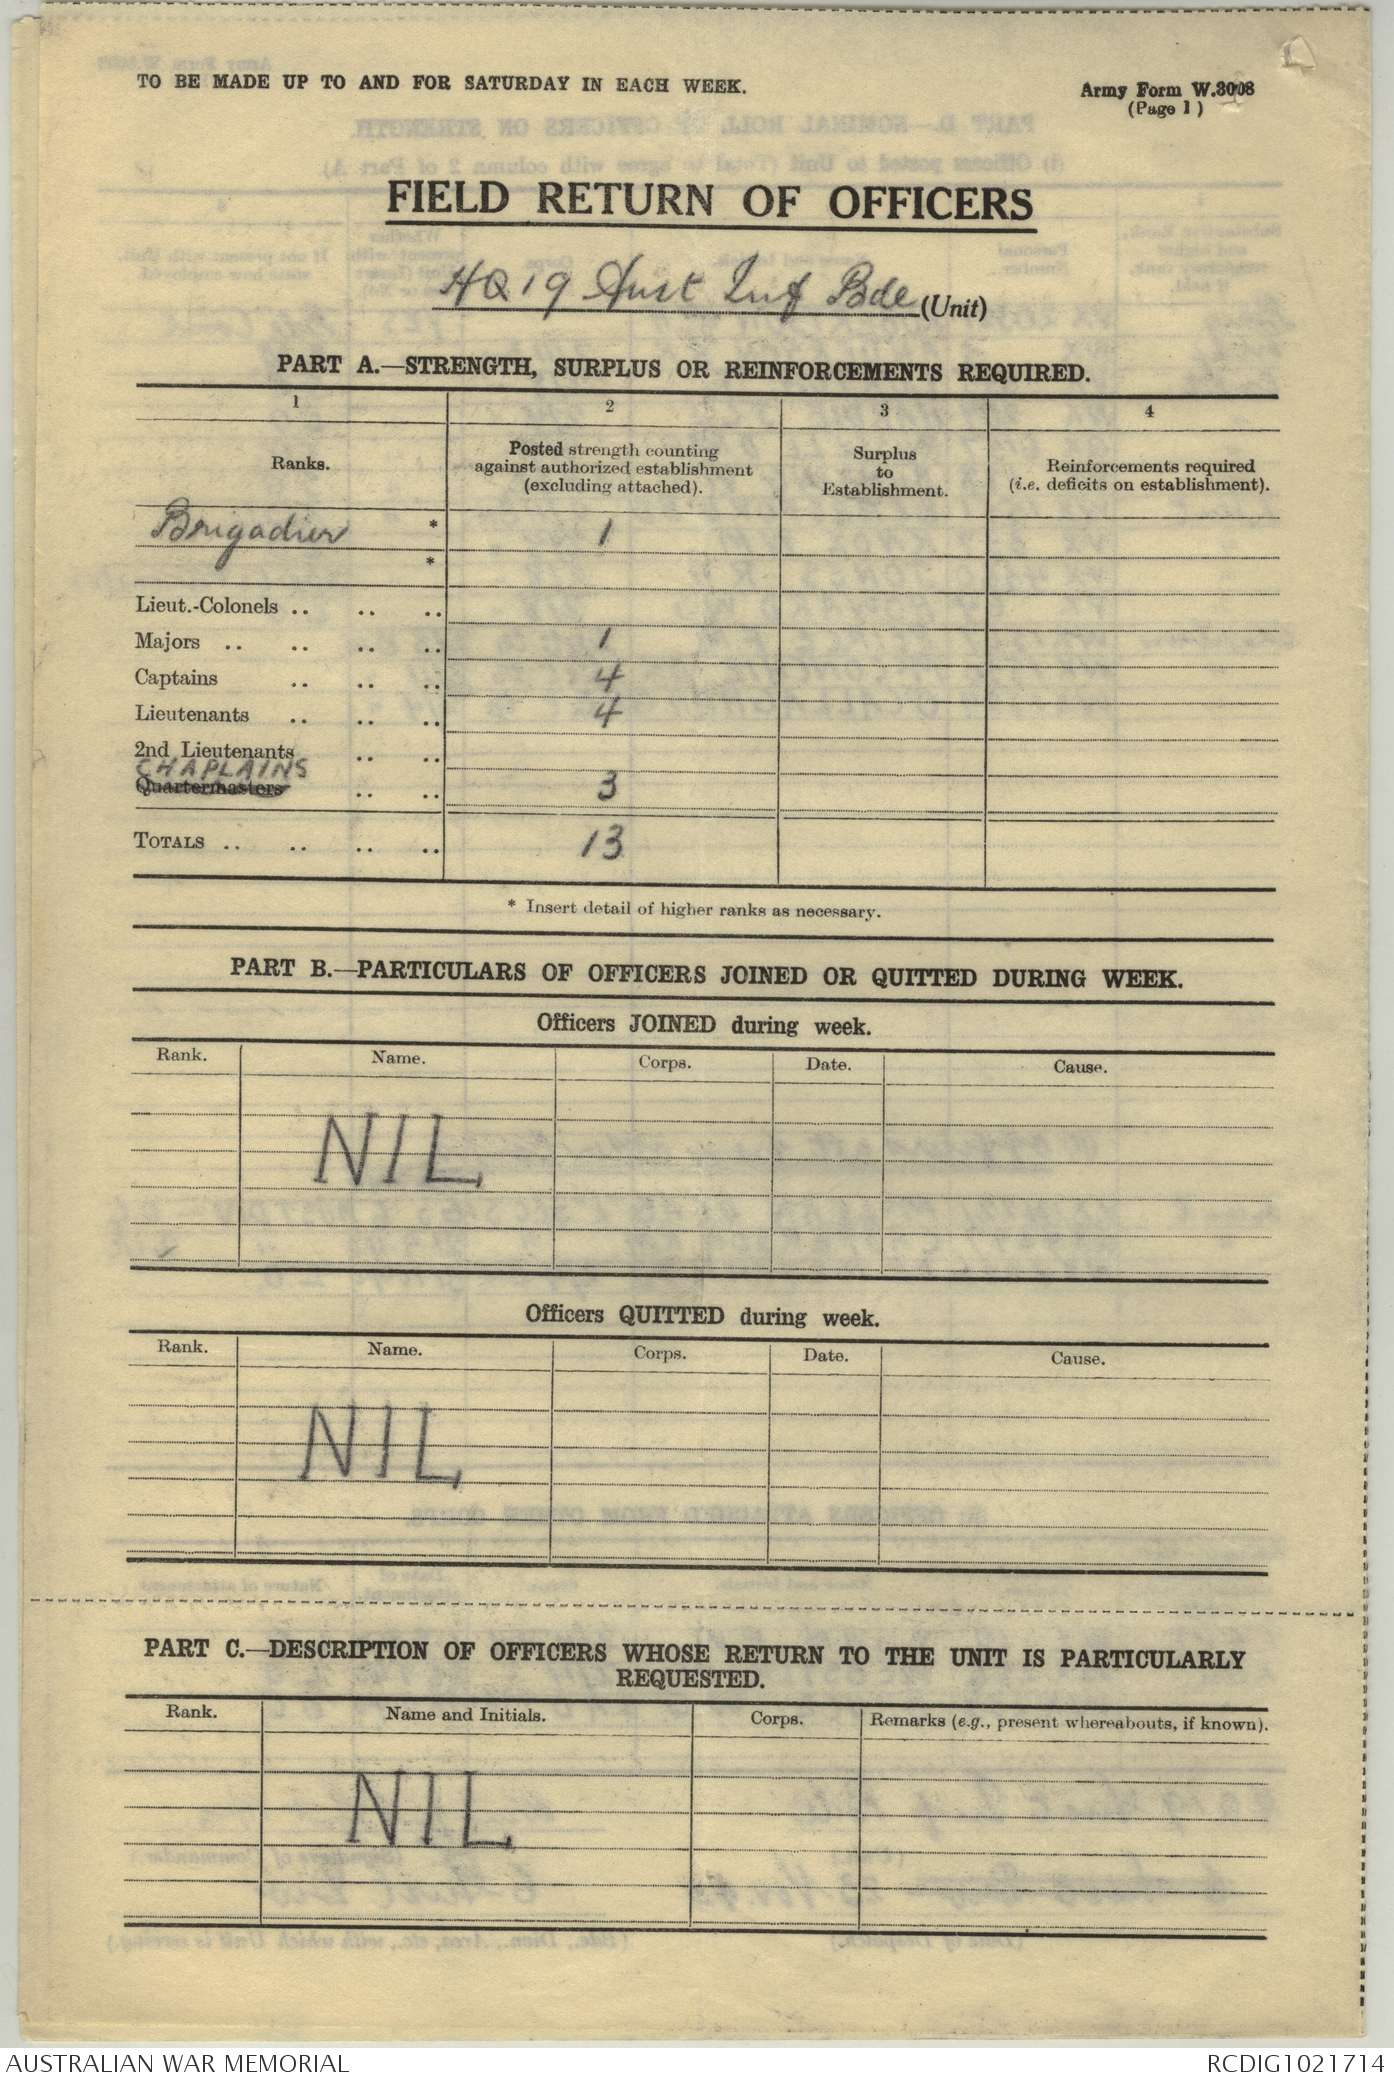 TO BE MADE UP TO AND FOR SATURDAY IN EACH WEEK.
Army Form W.3008
(Page 1)
FIELD RETURN OF OFFICERS
HQ 19 Aust Inf Bde (Unit)
PART A.—STRENGTH, SURPLUS OR REINFORCEMENTS REQUIRED.
1 2 3 4
Ranks. Posted strength counting against authorized establishment (excluding attached). Surplus to Establishment. Reinforcements required (i.e. deficits on establishment).
Brigadier * 1
*
Lieut.-Colonels .. .. ..
Majors .. .. .. .. 1
Captains .. .. .. 4
Lieutenants .. .. .. 4
2nd Lieutenants .. ..
CHAPLAINS
Quartermasters .. .. 3
TOTALS .. .. .. .. 13
* Insert detail of higher ranks as necessary.
PART B.—PARTICULARS OF OFFICERS JOINED OR QUITTED DURING WEEK.
Officers JOINED during week.
Rank. Name. Corps. Date. Cause.
NIL
Officers QUITTED during week.
Rank. Name. Corps. Date. Cause.
NIL
PART C.—DESCRIPTION OF OFFICERS WHOSE RETURN TO THE UNIT IS PARTICULARLY
REQUESTED.
Rank. Name and Initials. Corps. Remarks (e.g., present whereabouts, if known).
NIL
AUSTRALIAN WAR MEMORIAL RCDIG1021714